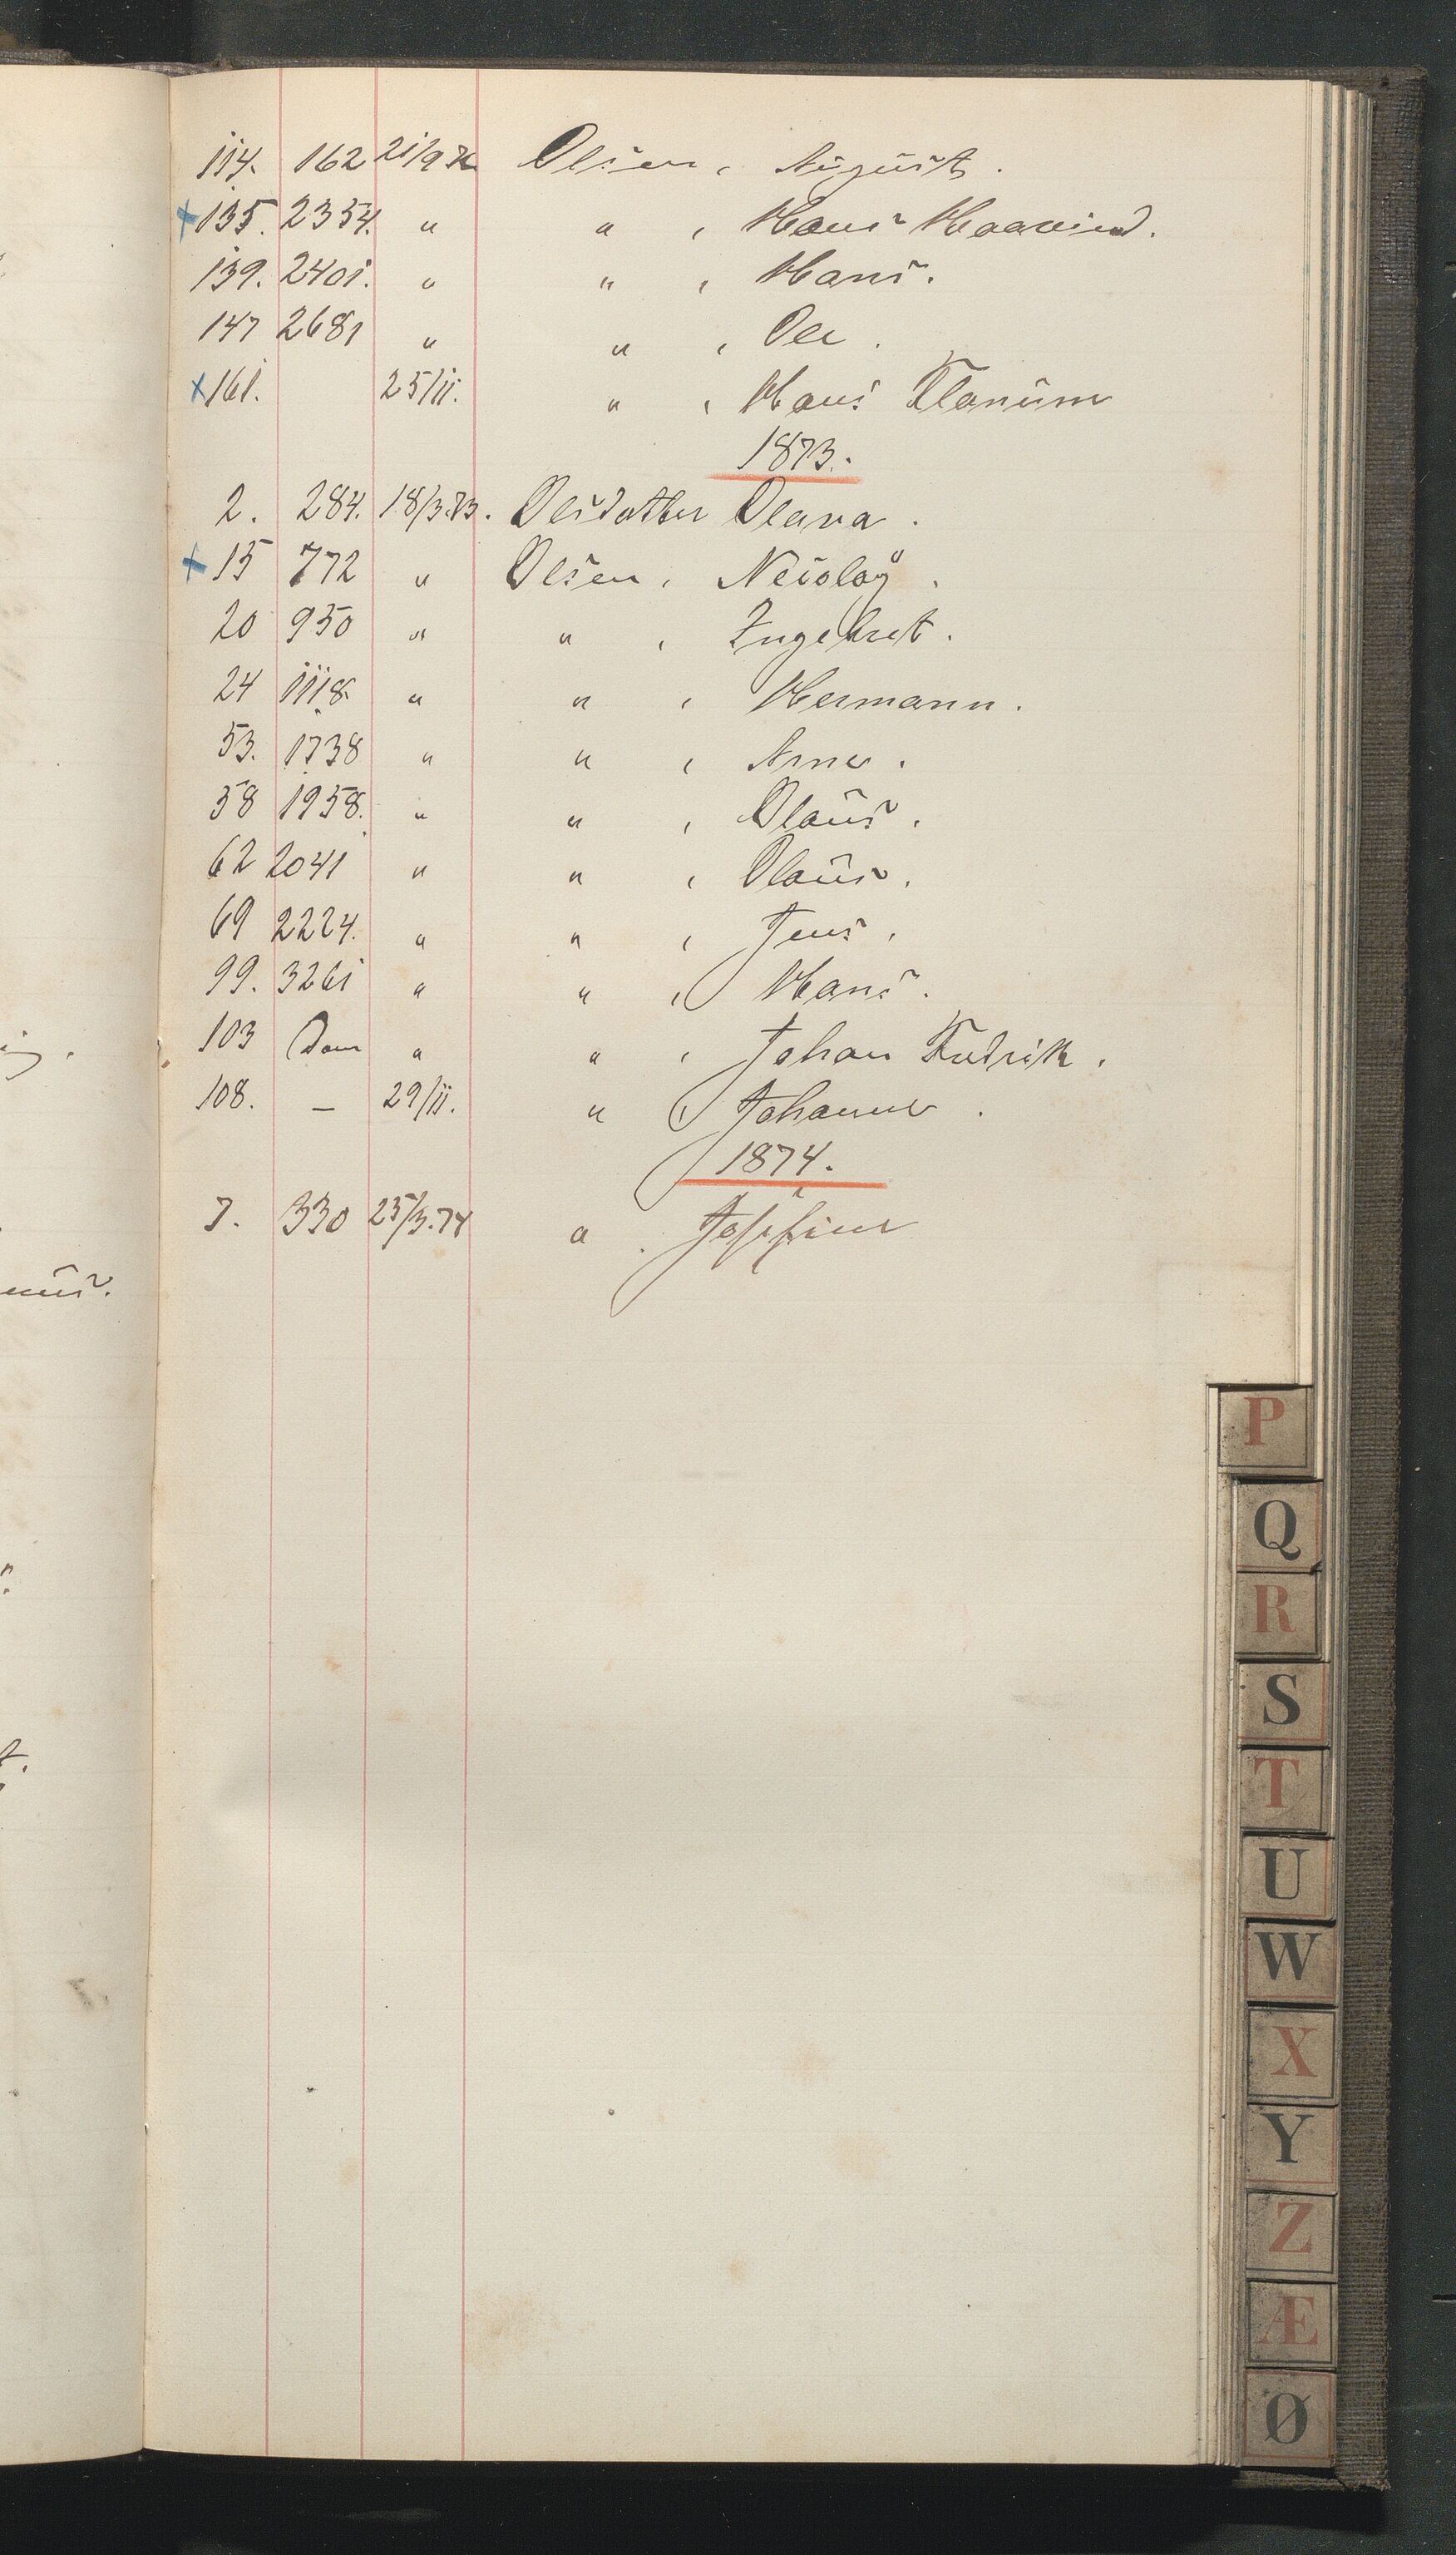 114. 162 21/9 72 Olsen, August.
+135. 2354. " " , Hans Haavind.
139. 2401. " " , Hans.
147 2681 " " , Ole.
x161. 25/11. " , Hans Flanum
1873.
2. 284. 18/3.73. Olsdatter Olava.
+15 772 " Olsen, Nicolay.
20 950 " " , Ingebret.
24 1118. " " , Hermann.
53. 1738 " " , Arne.
58 1958. " " , Olaus.
62 2041 " " , Olaus.
69 2224. " " , Jens.
99. 3261 " " , Hans.
103 Dom " " , Johan Fredrik.
108. – 29/11. " , Johanne.
1874.
7. 330 25/3.74 " . Josefine
P
Q
R
S
T
U
W
X
Y
Z
Æ
Ø